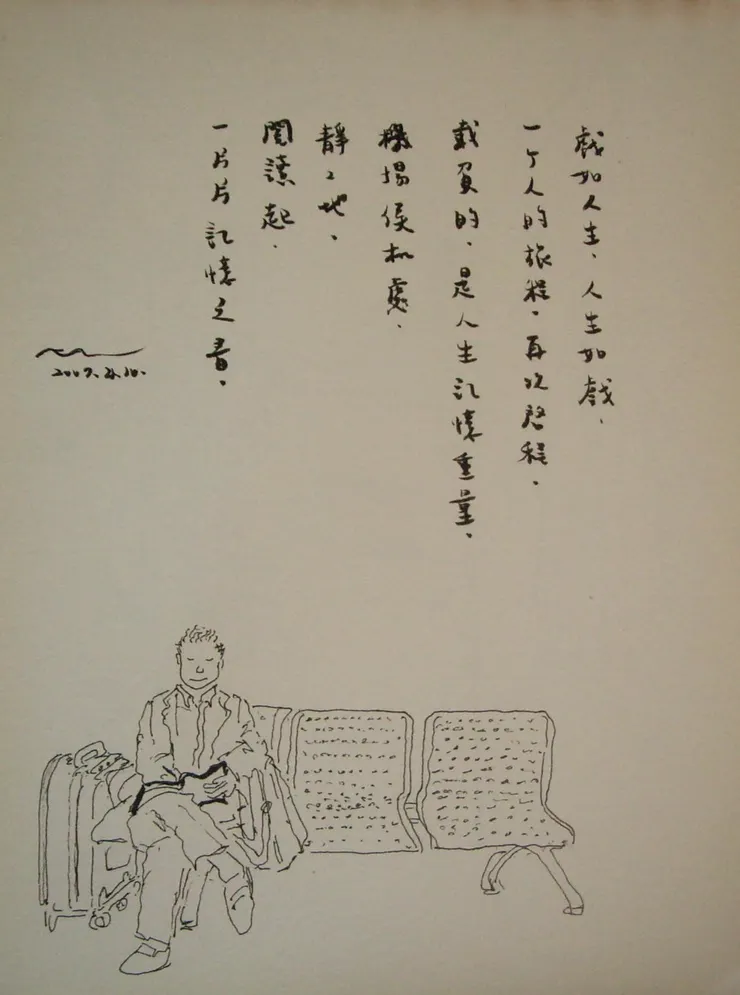 戲如人生、人生如戲、
一个人的旅程、再次啓程、
載負的、是人生記憶重量、
機場侯机處、
靜々地、
閱讀起、
一片片記憶之書、